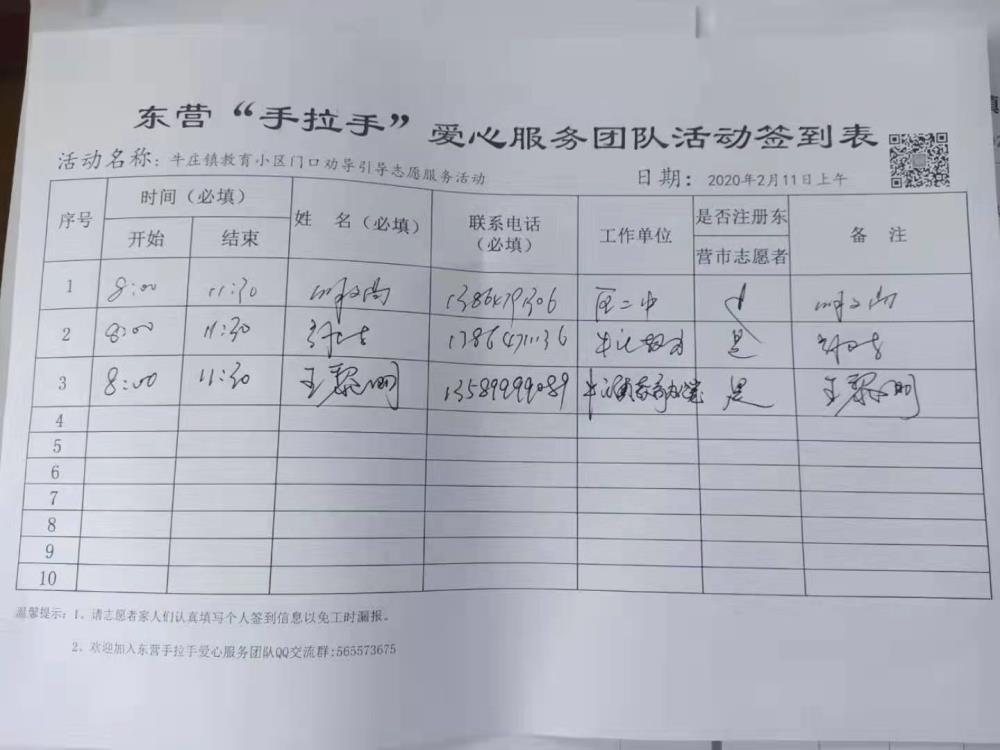 东营“手拉手”爱心服务团队活动签到表
活动名称：牛庄镇教育小区门口劝导引导志愿服务活动 日期：2020年2月11日上午
序号 时间（必填） 姓 名（必填） 联系电话（必填） 工作单位 是否注册东营市志愿者 备 注
开始 结束
1 8:00 11:30 区二中
2 8:00 11:30 是
3 8:00 11:30 王黎明 13589999089 是 王黎明
4
5
6
7
8
9
10
温馨提示：1、请志愿者家人们认真填写个人签到信息以免工时漏报。
2、欢迎加入东营手拉手爱心服务团队QQ交流群:565573675